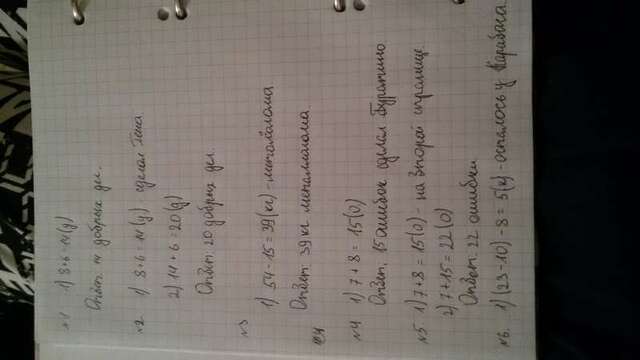 №1 1) 8+6=14(д)
Ответ: 14 добрых дел.
№2 1) 8+6=14(д) - сделал Гена
2) 14+6=20(д)
Ответ: 20 добрых дел.
№3
1) 54-15=39(кг) - металолома.
Ответ: 39 кг металлолома.
№4 1) 7+8= 15(0)
Ответ: 15 ошибок сделал Буратино
№5 1) 7+8= 15(0) - на второй странице.
2) 7+15=22(0)
Ответ: 22 ошибки
№6. 1) (23-10)-8=5(к) - осталось у Карабаса.